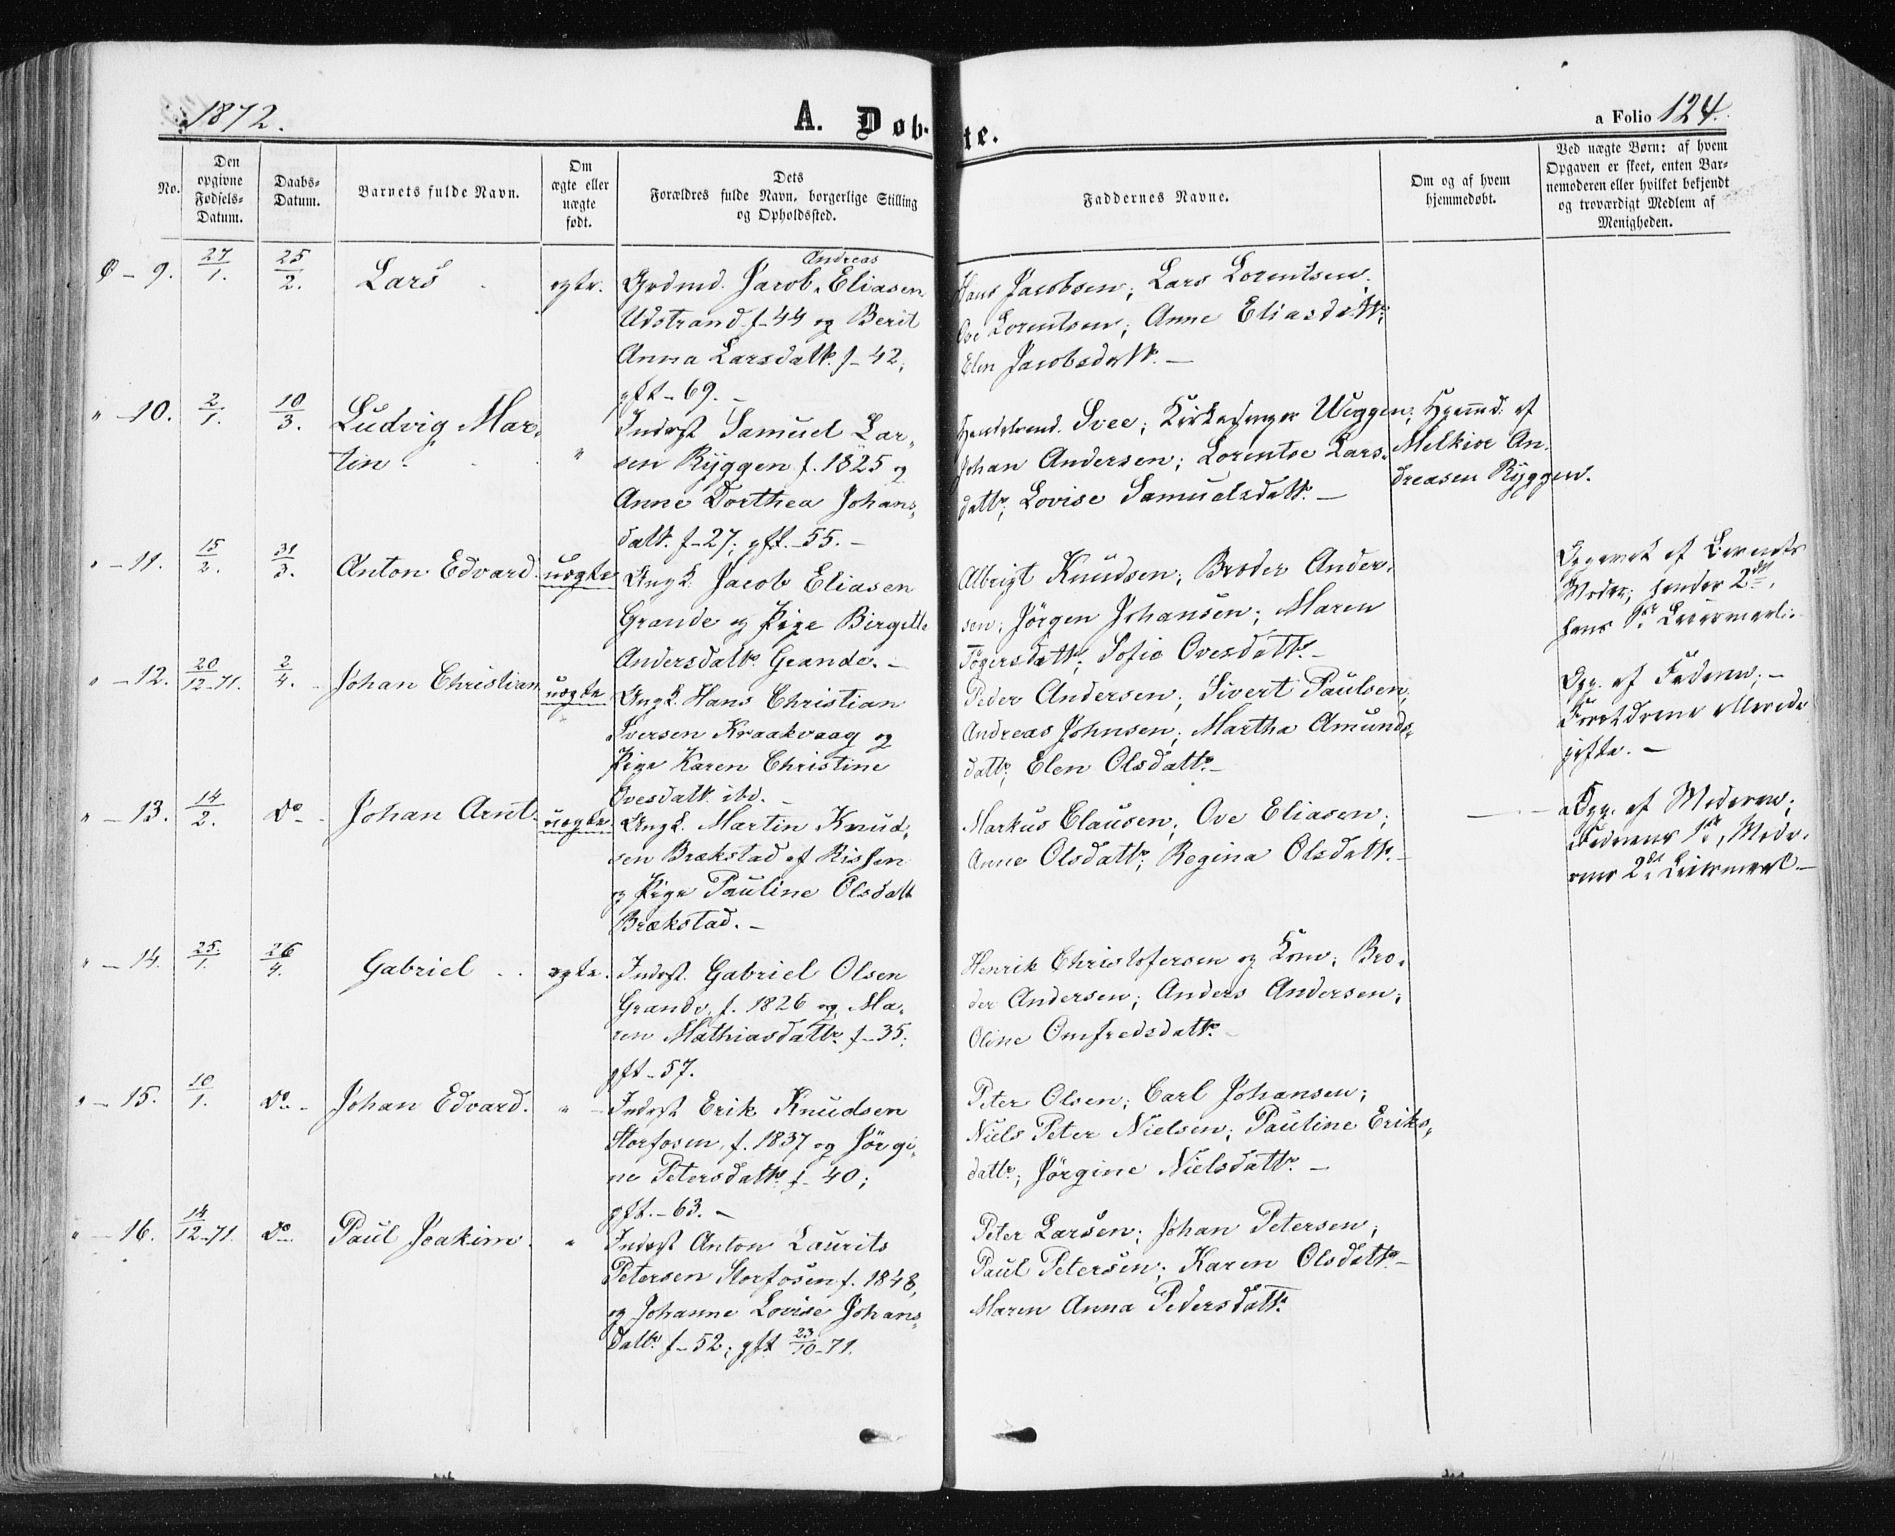 1872.
A. Døbte.
a Folio 124.
No.
Den opgivne Fødsels-Datum.
Daabs-Datum.
Barnets fulde Navn.
Om ægte eller uægte født.
Dets Forældres fulde Navn, borgerlige Stilling og Opholdssted.
Faddernes Navne.
Om og af hvem hjemmedøbt.
Ved uægte Børn: af hvem Opgaven er skeet, enten Barnemoderen eller hvilket bekjendt og troværdigt Medlem af Menigheden.
Ø - 9. 27/1. 25/2. Lars ægte.
Andreas
Grdmd. Jacob Eliasen
Udstrand f. 44 og Berit
Anna Larsdatt. f. 42,
gft. 69. -
Hans Jacobsen; Lars Lorentsen;
Ove Lorentsen; Anne Eliasdattr;
Elen Jacobsdattr. -
" - 10. 2/1. 10/3. Ludvig Mar-
tin. "
Inderst Samuel Lar-
sen Ryggen f. 1825 og
Anne Dorthea Johans-
datt. f. 27; gft. 55. -
Handelsmd. Svee; Kirkesanger Wiggen;
Johan Andersen; Lorentse Lars-
dattr; Lovise Samuelsdattr. -
Hjemmd. af
Melkior An-
dreasen Ryggen.
" - 11. 15/2. 31/3. Anton Edvard. uægte
Ungk. Jacob Eliasen
Grande og Pige Birgitte
Andersdattr Grande. -
Albrigt Knudsen; Broder Ander-
sen; Jørgen Johansen; Maren
Tøgersdattr; Sofie Ovesdattr. -
Opgivet af Barnets
Moder; hendes 2det,
hans 1ste Leiermaal.
" - 12. 20/12-71. 2/4. Johan Christian uægte
Ungk. Hans Christian
Iversen Kraakvaag og
Pige Karen Christine
Ovesdatt. ibd. -
Peder Andersen; Sivert Paulsen,
Andreas Johnsen; Martha Amunds-
dattr; Elen Olsdattr. -
Opg. af Faderen; -
Forældrene allerede
gifte. -
" - 13. 14/2. Do. Johan Arnt. uægte.
Ungk. Martin Knud-
sen Brækstad af Rissen
og Pige Pauline Olsdatt
Brækstad. -
Markus Clausen; Ove Eliasen;
Anne Olsdattr; Regina Olsdattr. -
Opg. af Moderen;
Faderens 1ste, Mode-
rens 2det Leiermaal. -
" - 14. 25/1. 26/4. Gabriel ægte.
Inderst. Gabriel Olsen
Grande, f. 1826 og Ma-
ren Mathiasdattr f. 35;
gft. 57.
Henrik Christofersen og Kone; Bro-
der Andersen; Anders Andersen;
Oline Omfredsdattr. -
" - 15. 10/1. Do. Johan Edvard. "
Inderst Erik Knudsen
Storfosen, f. 1837 og Jørgi-
ne Petersdattr f. 40;
gft. - 63. -
Peter Olsen; Carl Johansen;
Niels Peter Nielsen; Pauline Eriks-
dattr; Jørgine Nielsdattr. -
" - 16. 14/12-71. Do. Paul Joakim. "
Inderst Anton Laurits
Petersen Storfosen f. 1848,
og Johanne Lovise Johans-
dattr f. 52; gft 23/10-71.
Peter Larsen; Johan Petersen;
Paul Petersen; Karen Olsdattr. -
Maren Anna Pedersdattr.